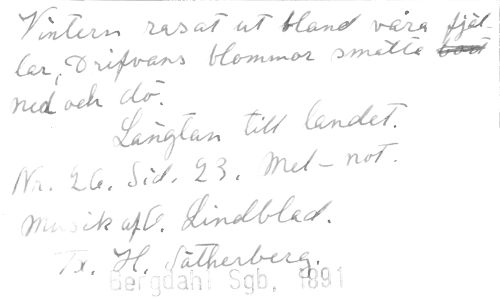 Vintern rasat ut bland våra fjäl-
lar, Drifvans blommor smälta
ned och dö.
Längtan till landet.
Nr. 26. Sid. 23. Mel-not.
Musik af O. Lindblad.
Tx. H. Sätherberg.
Bergdahl Sgb, 1891